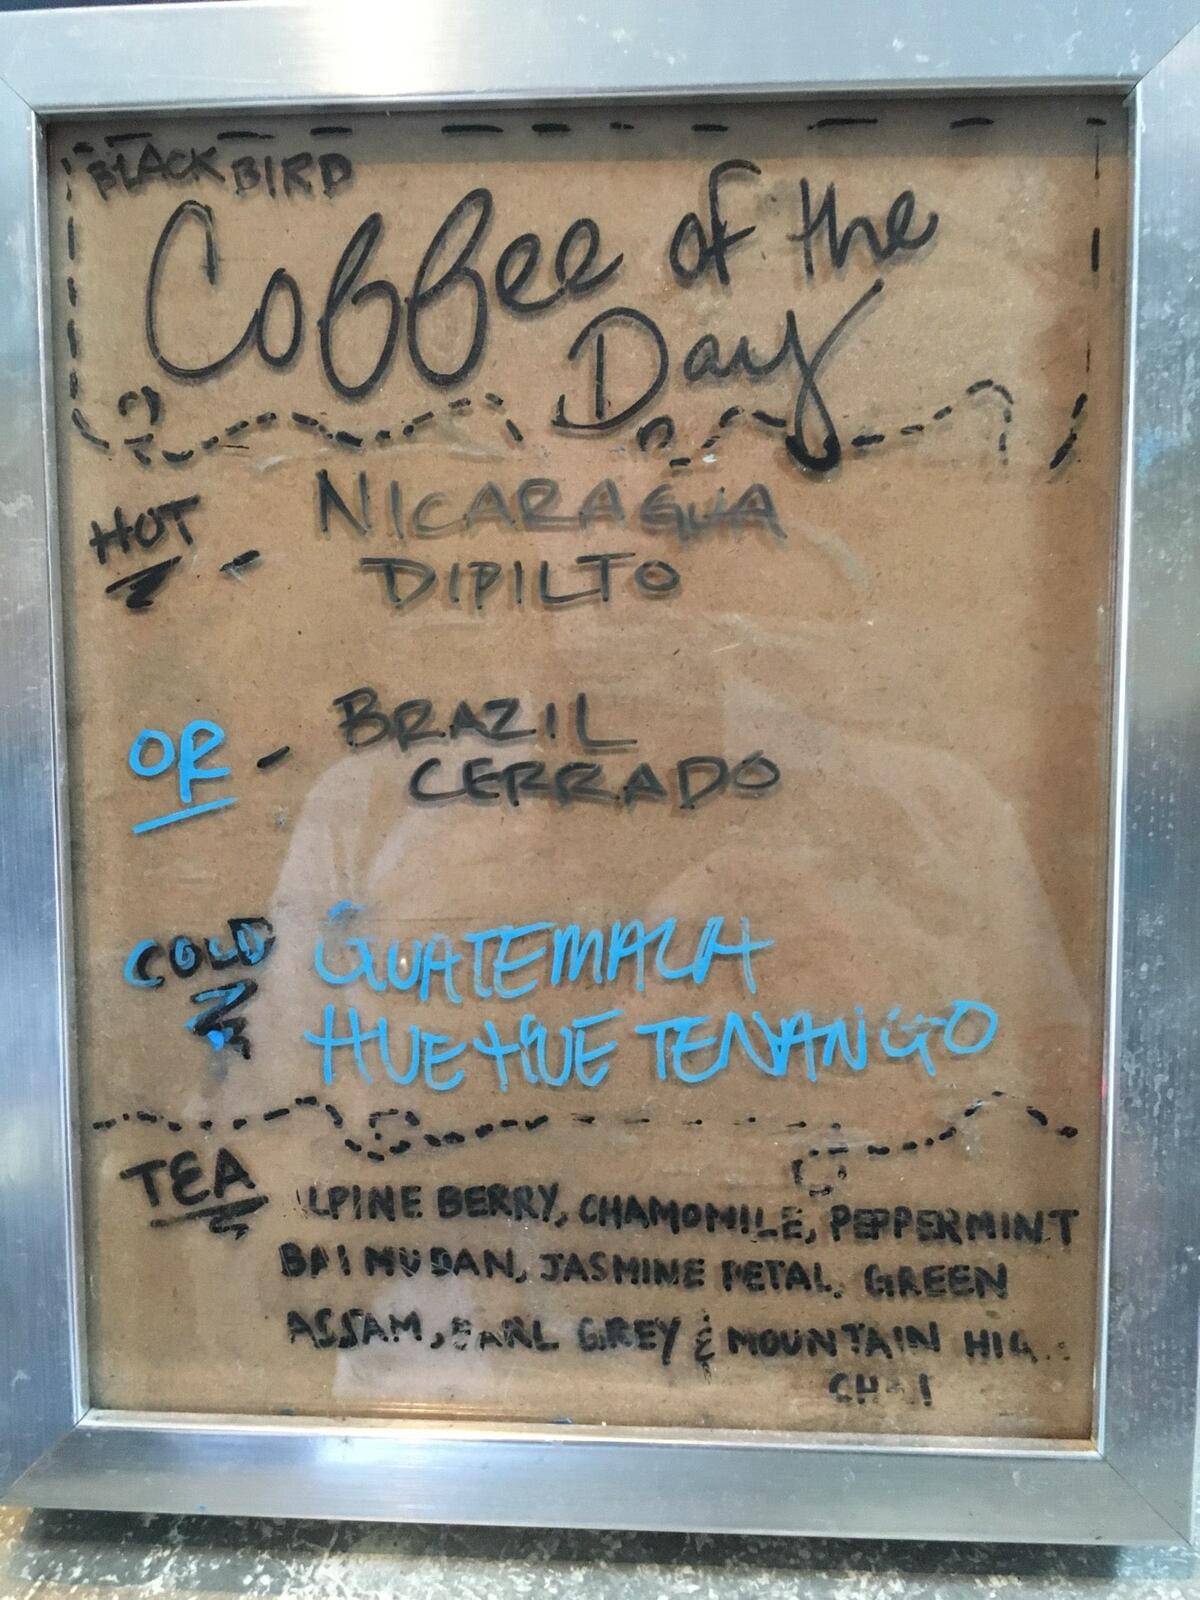 BLACKBIRD
Coffee of the
Day
HOT - NICARAGUA
DIPILTO
OR - BRAZIL
CERRADO
COLD GUATEMALA
HUEHUETENANGO
TEA LPINE BERRY, CHAMOMILE, PEPPERMINT
BAI MUDAN, JASMINE PETAL, GREEN
ASSAM, EARL GREY & MOUNTAIN HIG
CH I